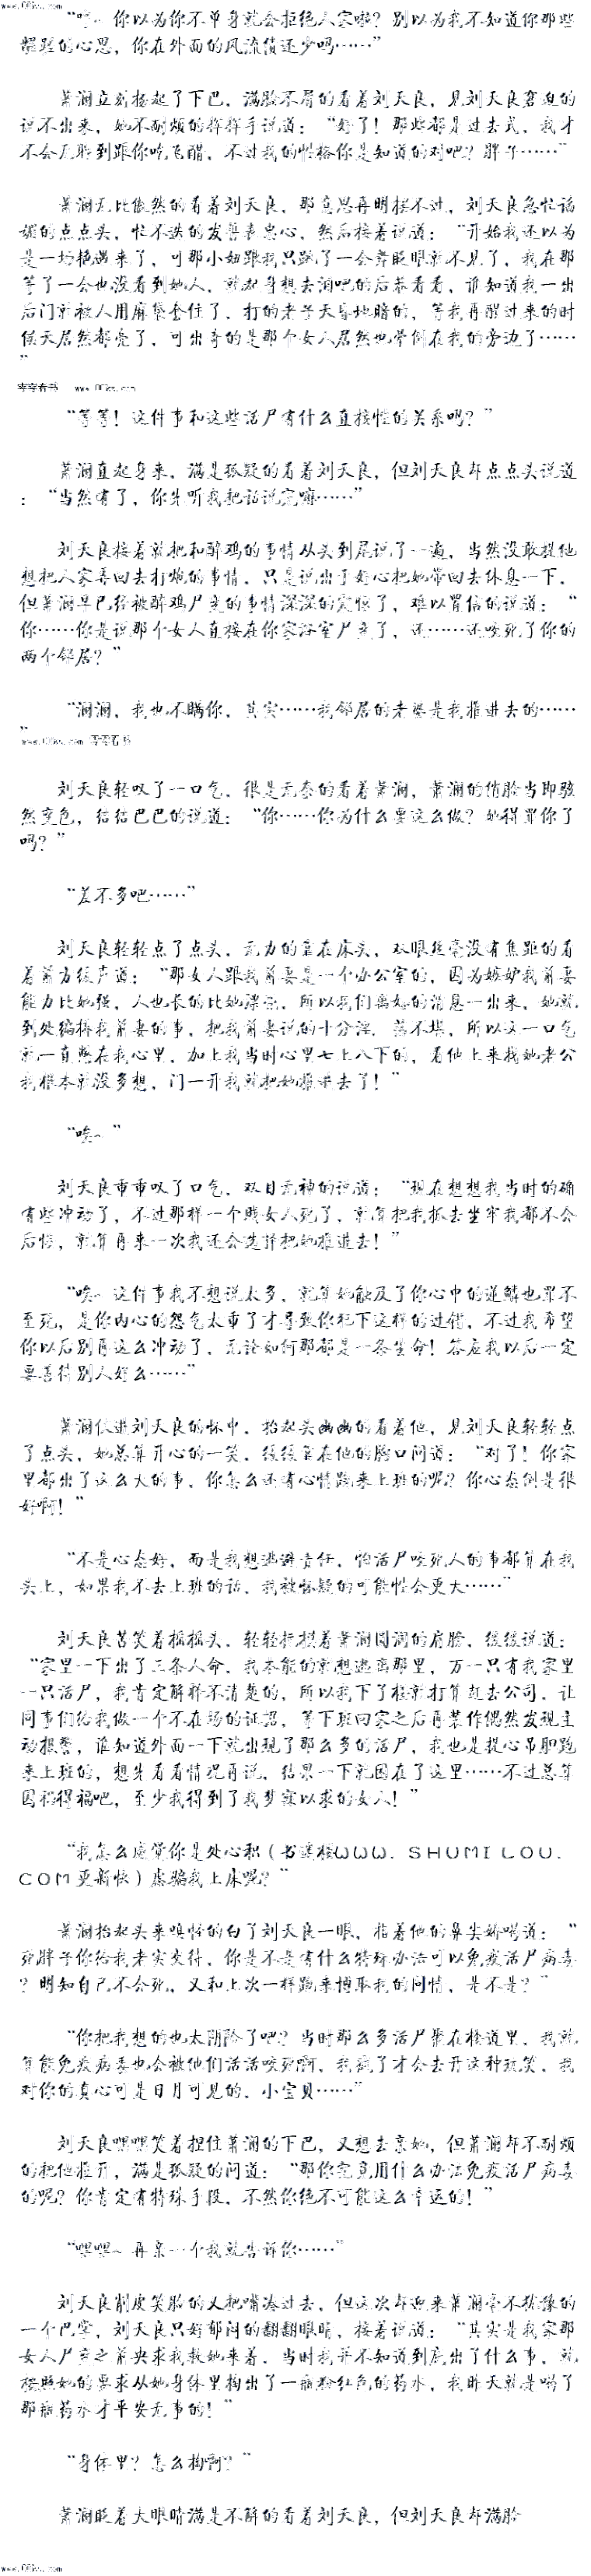 www.00kxs.com
“哼~ 你以为你不单身就会拒绝人家啦？别以为我不知道你那些
龌龊的心思，你在外面的风流债还少吗……”
萧澜立刻扬起了下巴，满脸不屑的看着刘天良，见刘天良窘迫的
说不出来，她不耐烦的挥挥手说道：“好了！那些都是过去式，我才
不会无聊到跟你吃飞醋，不过我的性格你是知道的对吧？胖子……”
萧澜无比傲然的看着刘天良，那意思再明摆不过，刘天良急忙谄
媚的点点头，忙不迭的发誓表忠心，然后接着说道：“开始我还以为
是一场艳遇来了，可那小妞跟我只跳了一会舞眨眼就不见了，我在那
等了一会也没看到她人，就起身想去酒吧的后巷看看，谁知道我一出
后门就被人用麻袋套住了，打的老子天昏地暗的，等我再醒过来的时
候天居然都亮了，可出奇的是那个女人居然也晕倒在我的旁边了……
”
“等等！这件事和这些活尸有什么直接性的关系吗？”
萧澜直起身来，满是狐疑的看着刘天良，但刘天良却点点头说道
：“当然有了，你先听我把话说完嘛……”
刘天良接着就把和醉鸡的事情从头到尾说了一遍，当然没敢提他
想把人家弄回去打炮的事情，只是说出于好心把她带回去休息一下，
但萧澜早已经被醉鸡尸变的事情深深的震惊了，难以置信的说道：“
你……你是说那个女人直接在你家浴室尸变了，还……还咬死了你的
两个邻居？”
“澜澜，我也不瞒你，其实……我邻居的老婆是我推进去的……
”
刘天良轻叹了一口气，很是无奈的看着萧澜，萧澜的俏脸当即骇
然变色，结结巴巴的说道：“你……你为什么要这么做？她得罪你了
吗？”
“差不多吧……”
刘天良轻轻点了点头，无力的靠在床头，双眼丝毫没有焦距的看
着前方缓声道：“那女人跟我前妻是一个办公室的，因为嫉妒我前妻
能力比她强，人也长的比她漂亮，所以我们离婚的消息一出来，她就
到处编排我前妻的事，把我前妻说的十分淫 荡不堪，所以这一口气
就一直憋在我心里，加上我当时心里七上八下的，看他上来找她老公
我根本就没多想，门一开我就把她推进去了！”
“唉~ ”
刘天良重重叹了口气，双目无神的说道：“现在想想我当时的确
有些冲动了，不过那样一个贱女人死了，就算把我抓去坐牢我都不会
后悔，就算再来一次我还会选择把她推进去！”
“唉~ 这件事我不想说太多，就算她触及了你心中的逆鳞也罪不
至死，是你内心的怨气太重了才导致你犯下这样的过错，不过我希望
你以后别再这么冲动了，无论如何那都是一条生命！答应我以后一定
要善待别人好么……”
萧澜依进刘天良的怀中，抬起头幽幽的看着他，见刘天良轻轻点
了点头，她总算开心的一笑，缓缓靠在他的胸口问道：“对了！你家
里都出了这么大的事，你怎么还有心情跑来上班的呢？你心态倒是很
好啊！”
“不是心态好，而是我想逃避责任，怕活尸咬死人的事都算在我
头上，如果我不去上班的话，我被怀疑的可能性会更大……”
刘天良苦笑着摇摇头，轻轻抚摸着萧澜圆润的肩膀，缓缓说道：
“家里一下出了三条人命，我本能的就想逃离那里，万一只有我家里
一只活尸，我肯定解释不清楚的，所以我下了楼就打算赶去公司，让
同事们给我做一个不在场的证明，等下班回家之后再装作偶然发现主
动报警，谁知道外面一下就出现了那么多的活尸，我也是提心吊胆跑
来上班的，想先看看情况再说，结果一下就困在了这里……不过总算
因祸得福吧，至少我得到了我梦寐以求的女人！”
“我怎么感觉你是处心积（书迷楼ＷＷＷ．ＳＨＵＭＩＬＯＵ．
ＣＯＭ更新快）虑骗我上床呢？”
萧澜抬起头来嗔怪的白了刘天良一眼，指着他的鼻尖娇喝道：“
死胖子你给我老实交待，你是不是有什么特殊办法可以免疫活尸病毒
？明知自己不会死，又和上次一样跑来博取我的同情，是不是？”
“你把我想的也太阴险了吧？当时那么多活尸聚在楼道里，我就
算能免疫病毒也会被他们活活咬死啊，我疯了才会去开这种玩笑，我
对你的真心可是日月可见的，小宝贝……”
刘天良嘿嘿笑着捏住萧澜的下巴，又想去亲她，但萧澜却不耐烦
的把他推开，满是狐疑的问道：“那你究竟用什么办法免疫活尸病毒
的呢？你肯定有特殊手段，不然你绝不可能这么幸运的！”
“嘿嘿~ 再亲一个我就告诉你……”
刘天良削皮笑脸的又把嘴凑过去，但这次却迎来萧澜毫不犹豫的
一个巴掌，刘天良只好郁闷的翻翻眼睛，接着说道：“其实是我家那
女人尸变之前央求我救她来着，当时我并不知道到底出了什么事，就
按照她的要求从她身体里掏出了一瓶粉红色的药水，我昨天就是喝了
那瓶药水才平安无事的！”
“身体里？怎么掏啊？”
萧澜眨着大眼睛满是不解的看着刘天良，但刘天良却满脸